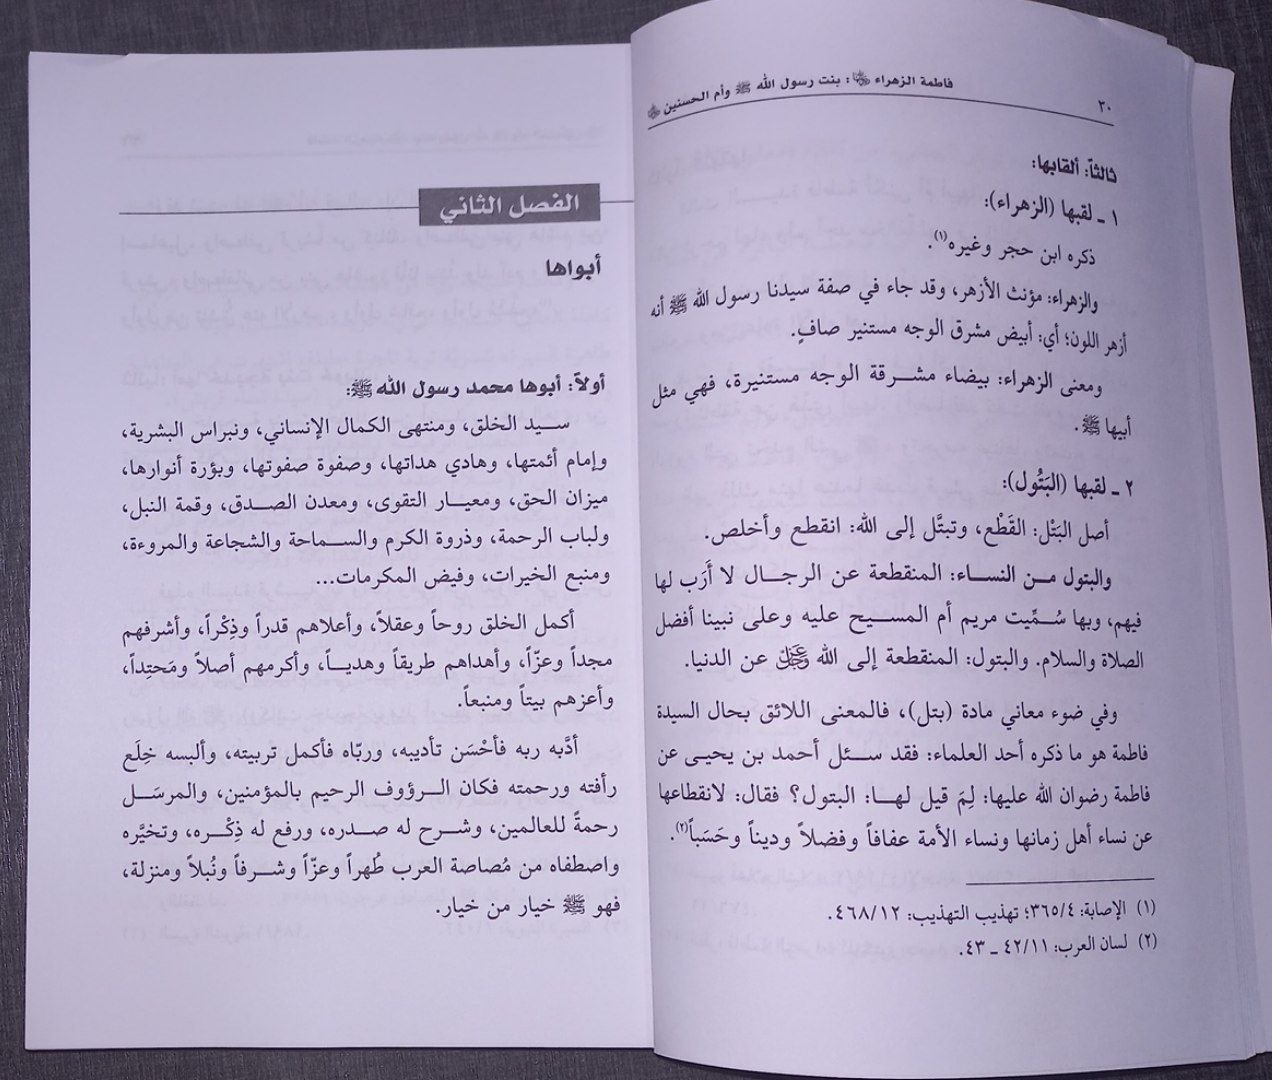 ٣٠
فاطمة الزهراء ﵂: بنت رسول الله ﷺ وأم الحسنين ﵄
ثالثاً: ألقابها:
١ ـ لقبها (الزهراء):
ذكره ابن حجر وغيره(١).
والزهراء: مؤنث الأزهر، وقد جاء في صفة سيدنا رسول الله ﷺ أنه
أزهر اللون؛ أي: أبيض مشرق الوجه مستنير صافٍ.
ومعنى الزهراء: بيضاء مشرقة الوجه مستنيرة، فهي مثل
أبيها ﷺ.
٢ ـ لقبها (البَتُول):
أصل البَتْل: القَطْع، وتبتَّل إلى الله: انقطع وأخلص.
والبتول من النساء: المنقطعة عن الرجال لا أَرَب لها
فيهم، وبها سُمِّيت مريم أم المسيح عليه وعلى نبينا أفضل
الصلاة والسلام. والبتول: المنقطعة إلى الله عَزَّوَجَلَّ عن الدنيا.
وفي ضوء معاني مادة (بتل)، فالمعنى اللائق بحال السيدة
فاطمة هو ما ذكره أحد العلماء: فقد سئل أحمد بن يحيى عن
فاطمة رضوان الله عليها: لِمَ قيل لها: البتول؟ فقال: لانقطاعها
عن نساء أهل زمانها ونساء الأمة عفافاً وفضلاً وديناً وحَسَباً(٢).
(١) الإصابة: ٣٦٥/٤؛ تهذيب التهذيب: ٤٦٨/١٢.
(٢) لسان العرب: ٤٢/١١ ـ ٤٣.
الفصل الثاني
أبواها
أولاً: أبوها محمد رسول الله ﷺ:
سيد الخلق، ومنتهى الكمال الإنساني، ونبراس البشرية،
وإمام أئمتها، وهادي هداتها، وصفوة صفوتها، وبؤرة أنوارها،
ميزان الحق، ومعيار التقوى، ومعدن الصدق، وقمة النبل،
ولباب الرحمة، وذروة الكرم والسماحة والشجاعة والمروءة،
ومنبع الخيرات، وفيض المكرمات...
أكمل الخلق روحاً وعقلاً، وأعلاهم قدراً وذِكْراً، وأشرفهم
مجداً وعزّاً، وأهداهم طريقاً وهدياً، وأكرمهم أصلاً ومَحتِداً،
وأعزهم بيتاً ومنبعاً.
أدَّبه ربه فأحْسَن تأديبه، وربّاه فأكمل تربيته، وألبسه خِلَع
رأفته ورحمته فكان الرؤوف الرحيم بالمؤمنين، والمرسَل
رحمةً للعالمين، وشرح له صدره، ورفع له ذِكْره، وتخيَّره
واصطفاه من مُصاصة العرب طُهراً وعزّاً وشرفاً ونُبلاً ومنزلة،
فهو ﷺ خيار من خيار.